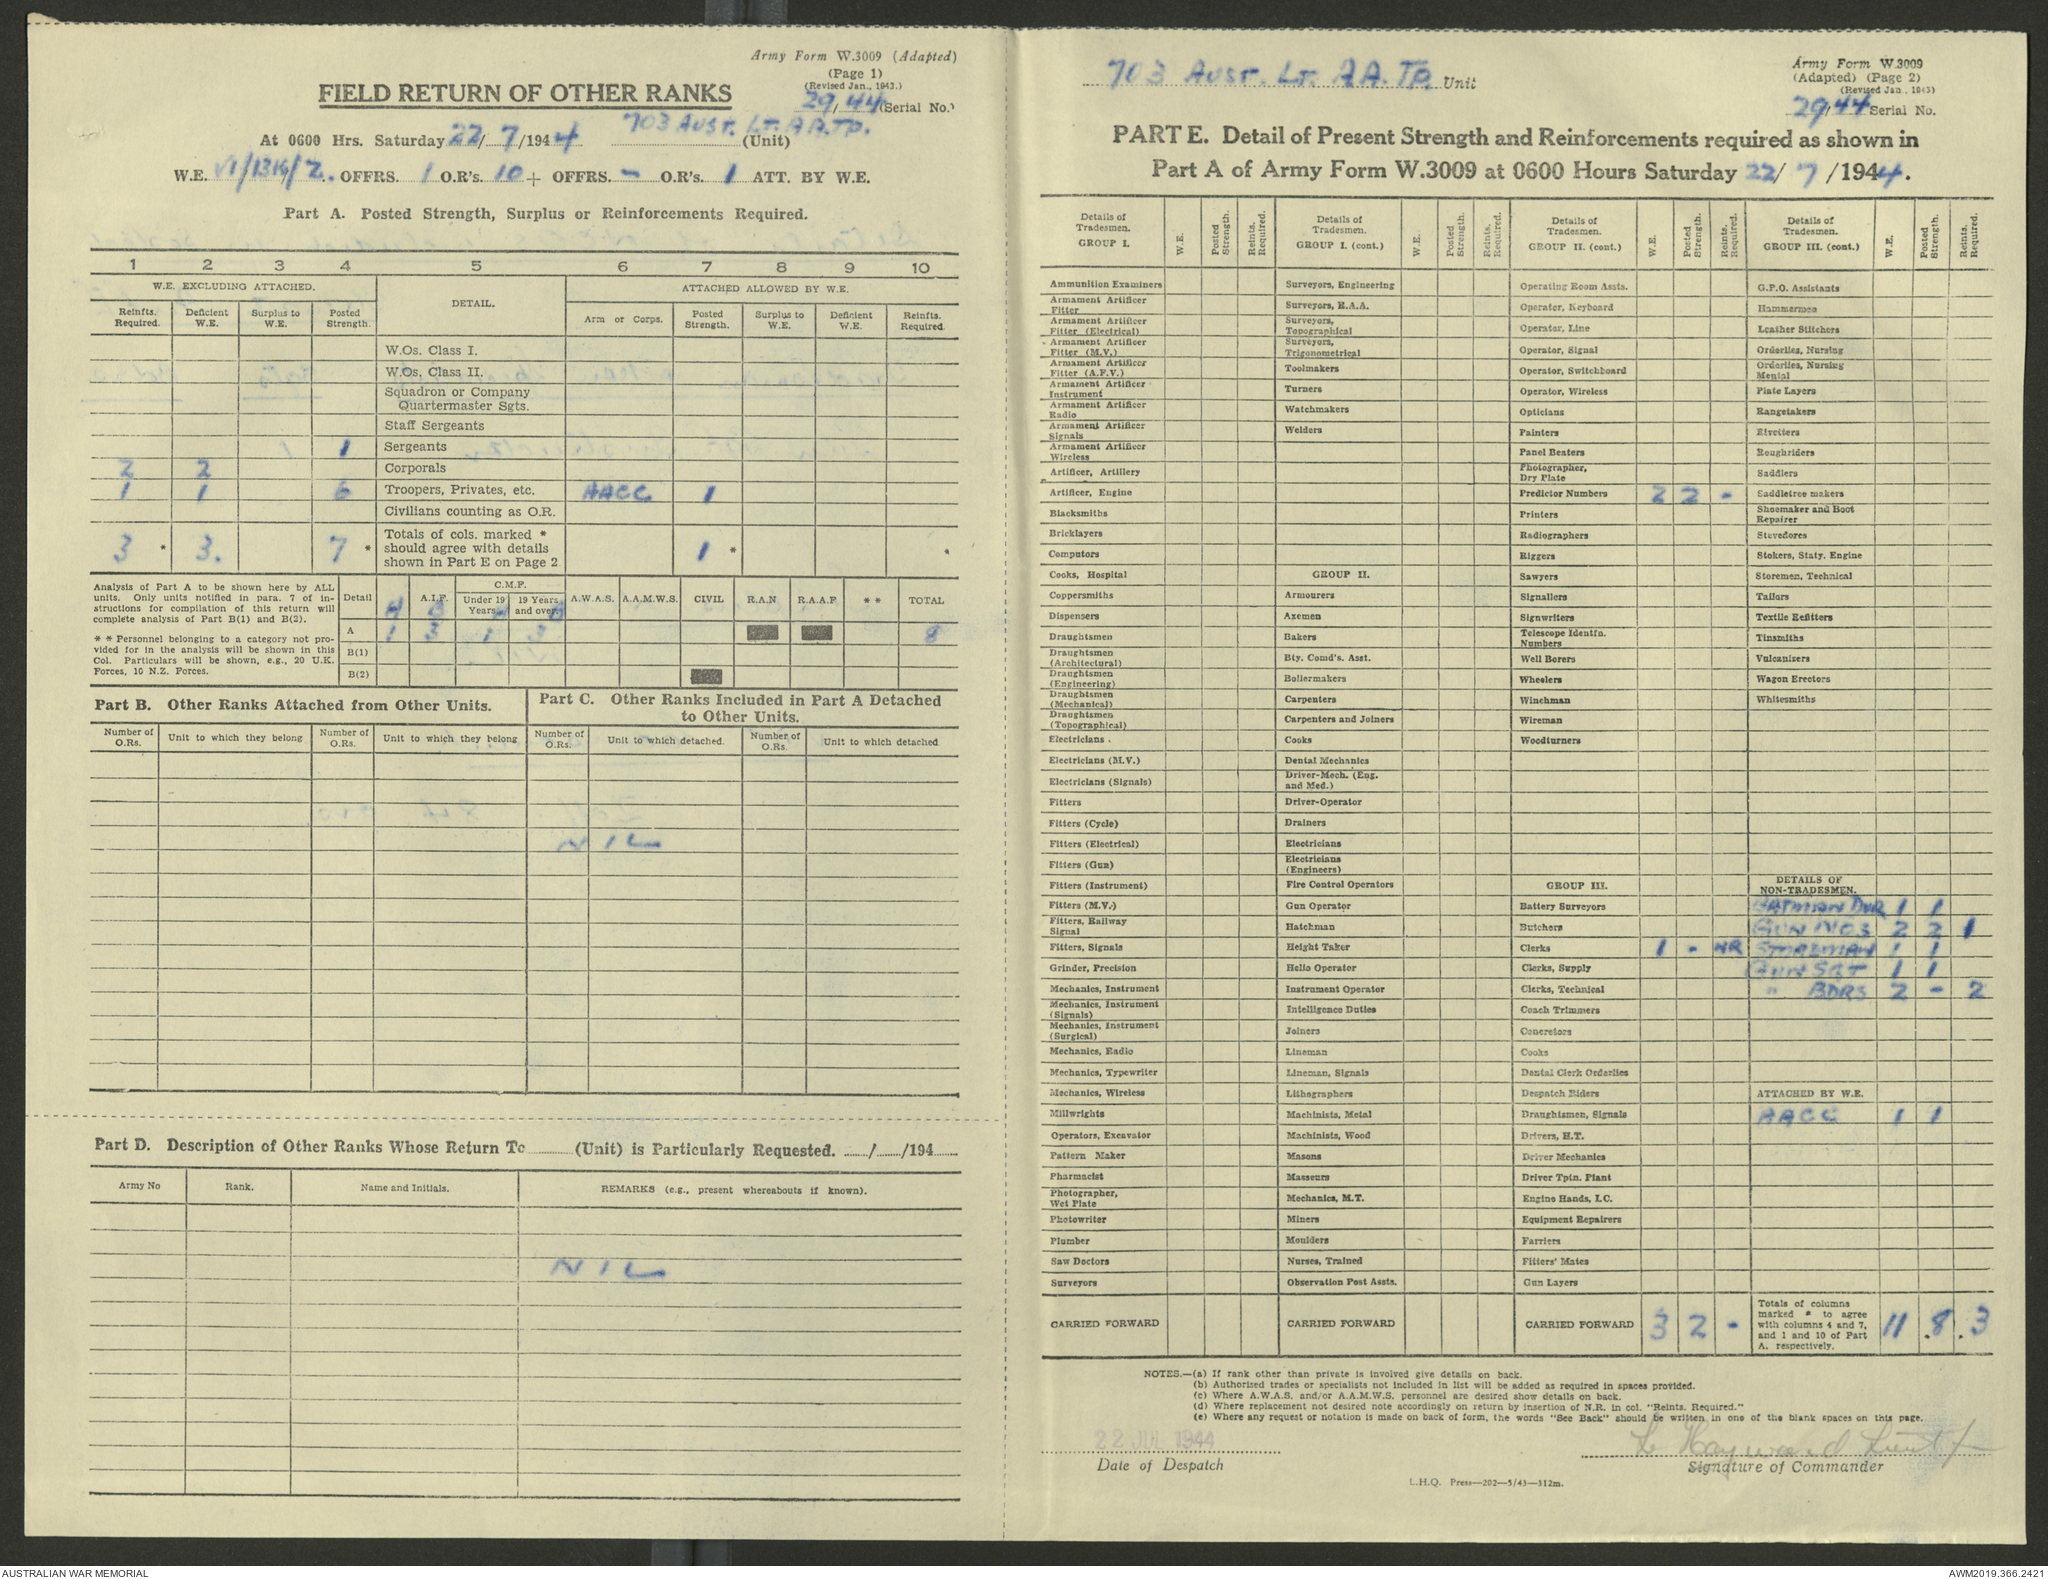 Army Form W.3009 (Adapted)
(Page 1)
(Revised Jan., 1943.)
FIELD RETURN OF OTHER RANKS
29/44 (Serial No.)
703 AUST. LT. A A. TP.
At 0600 Hrs. Saturday 22/7/1944 (Unit)
W.E. OFFRS. 1 O.R's. 10 + OFFRS. - O.R's. 1 ATT. BY W.E.
Part A. Posted Strength, Surplus or Reinforcements Required.
1 2 3 4 5 6 7 8 9 10
W.E. EXCLUDING ATTACHED. DETAIL. ATTACHED ALLOWED BY W.E.
Reinfts. Required. Deficient W.E. Surplus to W.E. Posted Strength. Arm or Corps. Posted Strength. Surplus to W.E. Deficient W.E. Reinfts. Required.
W.Os. Class I.
W.Os. Class II.
Squadron or Company
Quartermaster Sgts.
Staff Sergeants
1 Sergeants
2 2 Corporals
1 1 6 Troopers, Privates, etc. AACC 1
Civilians counting as O.R.
3 * 3. 7 * Totals of cols. marked * should agree with details shown in Part E on Page 2 1 * *
Analysis of Part A to be shown here by ALL
units. Only units notified in para. 7 of in-
structions for compilation of this return will
complete analysis of Part B(1) and B(2).
* * Personnel belonging to a category not pro-
vided for in the analysis will be shown in this
Col. Particulars will be shown, e.g., 20 U.K.
Forces, 10 N.Z. Forces.
Detail A.I.F. C.M.F. Under 19 Years 19 Years and over A.W.A.S. A.A.M.W.S. CIVIL R.A.N R.A.A.F * * TOTAL
A B A B
A 1 3 1 3 8
B(1)
B(2)
Part B. Other Ranks Attached from Other Units.
Number of O.Rs. Unit to which they belong Number of O.Rs. Unit to which they belong
Part C. Other Ranks Included in Part A Detached
to Other Units.
Number of O.Rs. Unit to which detached. Number of O.Rs. Unit to which detached
NIL
Part D. Description of Other Ranks Whose Return To ......... (Unit) is Particularly Requested. ....../....../194......
Army No Rank. Name and Initials. REMARKS (e.g., present whereabouts if known).
NIL
703 AUST. LT. A A. TP. Unit
Army Form W.3009
(Adapted) (Page 2)
(Revised Jan., 1943)
29/44 Serial No.
PART E. Detail of Present Strength and Reinforcements required as shown in
Part A of Army Form W.3009 at 0600 Hours Saturday 22/7/1944.
Details of Tradesmen. GROUP I. W.E. Posted Strength. Reints. Required.
Ammunition Examiners
Armament Artificer Fitter
Armament Artificer Fitter (Electrical)
Armament Artificer Fitter (M.V.)
Armament Artificer Fitter (A.F.V.)
Armament Artificer Instrument
Armament Artificer Radio
Armament Artificer Signals
Armament Artificer Wireless
Artificer, Artillery
Artificer, Engine
Blacksmiths
Bricklayers
Computors
Cooks, Hospital
Coppersmiths
Dispensers
Draughtsmen
Draughtsmen (Architectural)
Draughtsmen (Engineering)
Draughtsmen (Mechanical)
Draughtsmen (Topographical)
Electricians
Electricians (M.V.)
Electricians (Signals)
Fitters
Fitters (Cycle)
Fitters (Electrical)
Fitters (Gun)
Fitters (Instrument)
Fitters (M.V.)
Fitters, Railway Signal
Fitters, Signals
Grinder, Precision
Mechanics, Instrument
Mechanics, Instrument (Signals)
Mechanics, Instrument (Surgical)
Mechanics, Radio
Mechanics, Typewriter
Mechanics, Wireless
Millwrights
Operators, Excavator
Pattern Maker
Pharmacist
Photographer, Wet Plate
Photowriter
Plumber
Saw Doctors
Surveyors
CARRIED FORWARD
Details of Tradesmen. GROUP I. (cont.) W.E. Posted Strength. Reints. Required.
Surveyors, Engineering
Surveyors, R.A.A.
Surveyors, Topographical
Surveyors, Trigonometrical
Toolmakers
Turners
Watchmakers
Welders
GROUP II.
Armourers
Axemen
Bakers
Bty. Comd's. Asst.
Boilermakers
Carpenters
Carpenters and Joiners
Cooks
Dental Mechanics
Driver-Mech. (Eng. and Med.)
Driver-Operator
Drainers
Electricians
Electricians (Engineers)
Fire Control Operators
Gun Operator
Hatchman
Height Taker
Helio Operator
Instrument Operator
Intelligence Duties
Joiners
Lineman
Lineman, Signals
Lithographers
Machinists, Metal
Machinists, Wood
Masons
Masseurs
Mechanics, M.T.
Miners
Moulders
Nurses, Trained
Observation Post Assts.
CARRIED FORWARD
Details of Tradesmen. GROUP II. (cont.) W.E. Posted Strength. Reints. Required.
Operating Room Assts.
Operator, Keyboard
Operator, Line
Operator, Signal
Operator, Switchboard
Operator, Wireless
Opticians
Painters
Panel Beaters
Photographer, Dry Plate
Predictor Numbers 2 2 -
Printers
Radiographers
Riggers
Sawyers
Signallers
Signwriters
Telescope Identfn. Numbers
Well Borers
Wheelers
Winchman
Wireman
Woodturners
GROUP III.
Battery Surveyors
Butchers
Clerks 1 - NR
Clerks, Supply
Clerks, Technical
Coach Trimmers
Concretors
Cooks
Dental Clerk Orderlies
Despatch Riders
Draughtsmen, Signals
Drivers, H.T.
Driver Mechanics
Driver Tptn. Plant
Engine Hands, I.C.
Equipment Repairers
Farriers
Fitters' Mates
Gun Layers
CARRIED FORWARD 3 2 -
Details of Tradesmen. GROUP III. (cont.) W.E. Posted Strength. Reints. Required.
G.P.O. Assistants
Hammermen
Leather Stitchers
Orderlies, Nursing
Orderlies, Nursing Mental
Plate Layers
Rangetakers
Rivetters
Roughriders
Saddlers
Saddletree makers
Shoemaker and Boot Repairer
Stevedores
Stokers, Staty. Engine
Storemen, Technical
Tailors
Textile Refitters
Tinsmiths
Vulcanisers
Wagon Erectors
Whitesmiths
DETAILS OF NON-TRADESMEN.
BATMAN DVR 1 1
GUN NOS 2 2 1
STOREMAN 1 1
GUN SGT 1 1
" BDRS 2 - 2
ATTACHED BY W.E.
AACC 1 1
Totals of columns marked * to agree with columns 4 and 7, and 1 and 10 of Part A. respectively. 11 8 3
NOTES.—(a) If rank other than private is involved give details on back.
(b) Authorised trades or specialists not included in list will be added as required in spaces provided.
(c) Where A.W.A.S. and/or A.A.M.W.S. personnel are desired show details on back.
(d) Where replacement not desired note accordingly on return by insertion of N.R. in col. "Reints. Required."
(e) Where any request or notation is made on back of form, the words "See Back" should be written in one of the blank spaces on this page.
22 JUL 1944
Date of Despatch
Hayward Lieut
Signature of Commander
L.H.Q. Press—202—5/43—312m.
AUSTRALIAN WAR MEMORIAL
AWM2019.366.2421